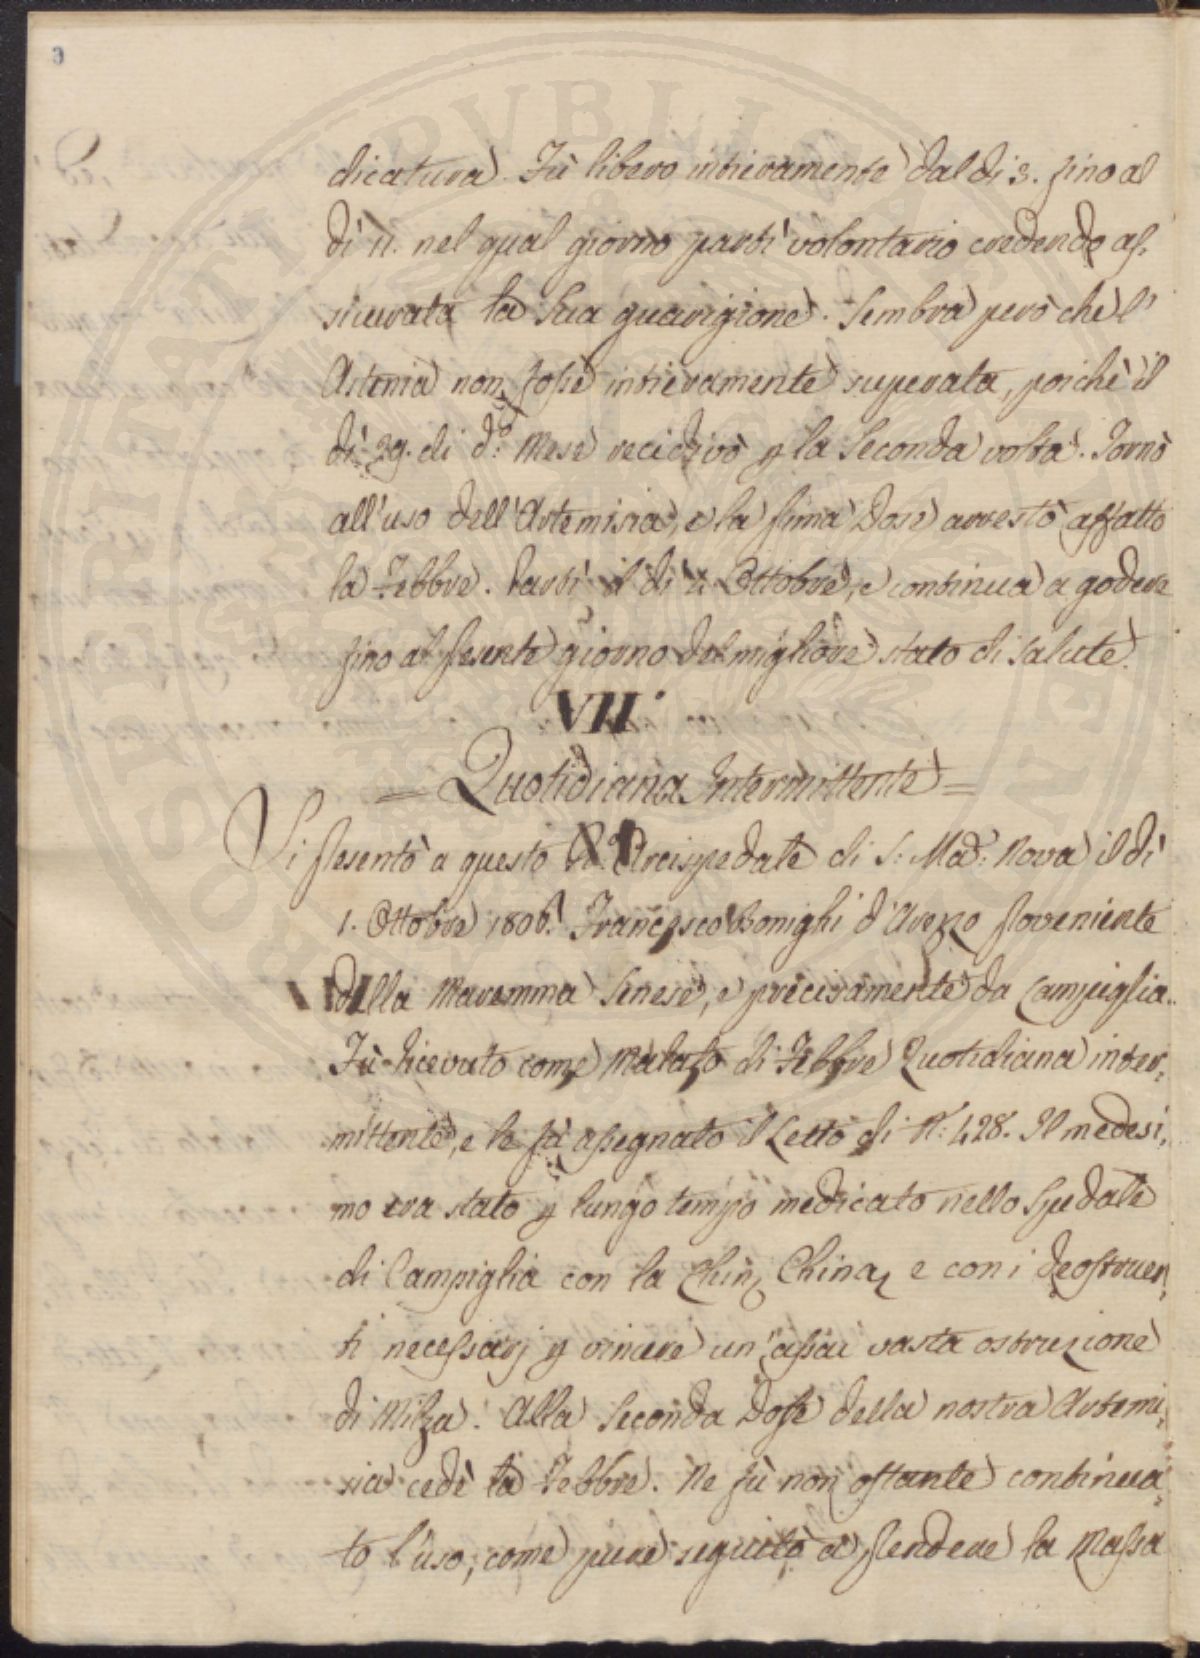 dicatura. Fù libero intieramente dal dì 3. fino al
dì 11. nel qual giorno partì volontario credendo as-
sicurata la sua guarigione. Sembra però che l'
Astenia non fosse intieramente superata, poichè il
dì 29. di d.º Mese recidivò p la seconda volta. Tornò
all'uso dell'Artemisia, e la prima Dose arrestò affatto
la Febbre. Partì il dì Ottobre, e continua a godere
fino al presente giorno del migliore stato di salute.
VII.º
= Quotidiana Intermittente =
Si presentò a questo R.º Arcispedale di S: Ma.ª: Nova il dì
1. Ottobre 1806. Francesco Bonighi d'Arezzo proveniente
dalla Maremma Senese, e precisamente da Campiglia.
Fù ricevuto come Malato di Febbre Quotidiana inter-
mittente, e le fù assegnato il Letto di N.: 428. Il medesi-
mo era stato p lungo tempo medicato nello Spedale
di Campiglia con la Chin China, e con i deostruen-
ti necessarj p vincere un'assai vasta ostruzione
di Milza. Alla seconda Dose della nostra Artemi-
sia cedè la Febbre. Ne fù non ostante continua-
to l'uso, come pure seguitò a prendere la Massa
SUPERIORITATI PUBLICAE